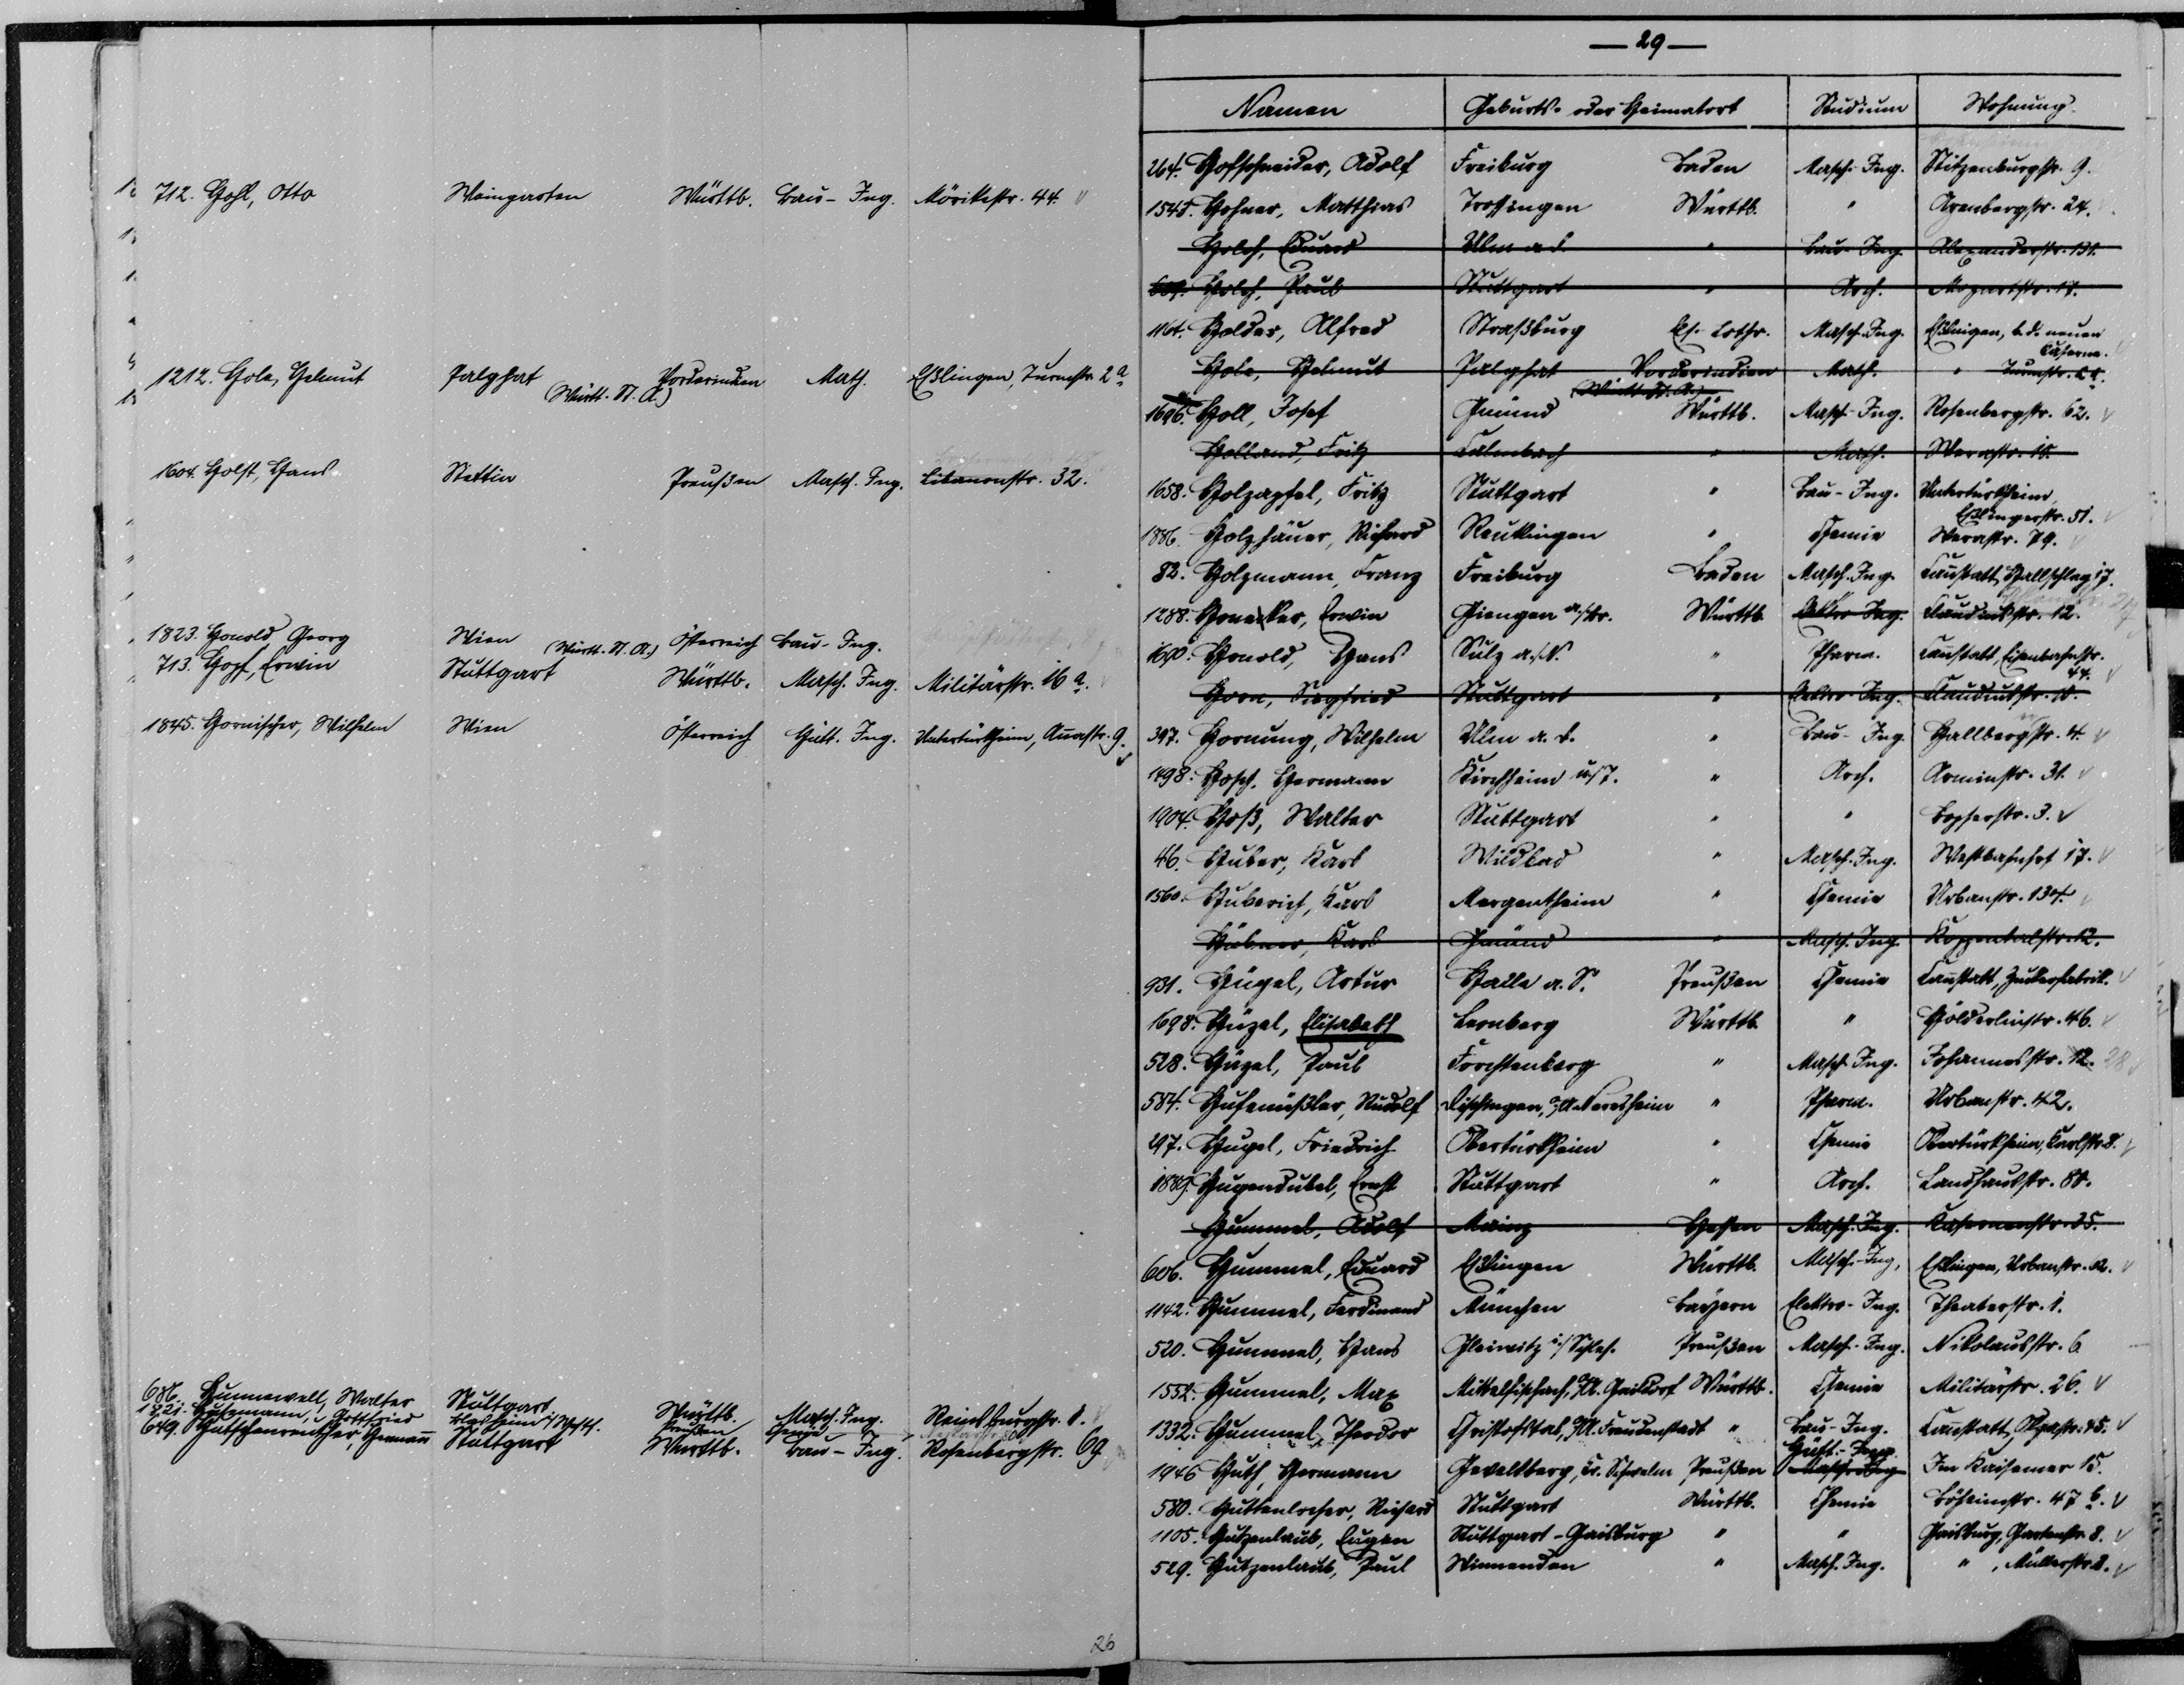 712. Hohl, Otto Weingarten Württb. Bau-Ing. Mörikestr. 44
1212. Hole, Helmut Palghat (Württ. St. A.) Vorderindien Math. Eßlingen, Turmstr. 2a
1604. Holst, Hans Stettin Preußen Masch. Ing. Libanonstr. 32.
1823. Honold Georg Wien (Württ. St. A.) Österreich Bau-Ing.
713. Hopf, Erwin Stuttgart Württb. Masch. Ing. Militärstr. 16a.
1845. Hornischer, Wilhelm Wien Österreich Hütt. Ing. Untertürkheim, Annastr. 9.
686. Hunnewell, Walter Stuttgart Württb. Masch. Ing. Reinsburgstr. 1.
1821. Gottfried Preußen Chemie
649. Hutschenreuther, Hermann Stuttgart Württb. Bau-Ing. Rosenbergstr. 69
26
— 29 —
Namen Geburts- oder Heimatort Studium Wohnung
264. Hofschneider, Adolf Freiburg Baden Masch. Ing. Stitzenburgstr. 9.
1545. Hohner, Matthias Trossingen Württb. " Azenbergstr. 24.
Holch, Eduard Ulm a.d. " Bau-Ing. Alexanderstr. 131.
Holch, Paul Stuttgart " Arch. Mozartstr. 17.
1164. Holder, Alfred Straßburg Els. Lothr. Masch. Ing. Eßlingen, b. d. neuen Caserne.
Hole, Helmut Palghat Vorderindien (Württ. St. A.) Math. " Turmstr.
1696. Holl, Josef Gmünd Württb. Masch-Ing. Rosenbergstr. 62.
Holland, Fritz Calmbach " Math. Werastr. 10.
1658. Holzapfel, Fritz Stuttgart " Bau-Ing. Untertürkheim, Eßlingerstr. 51.
1886. Holzhäuer, Richard Reutlingen " Chemie Werastr. 79.
82. Holzmann, Franz Freiburg Baden Masch. Ing. Cannstatt, Hallschlag 17.
1288. Honecker, Erwin Giengen a./Br. Württb. Elektro-Ing. Claudiusstr. 12.
1690. Honold, Hans Sulz a./N. " Pharm. Cannstatt, Eisenbahnstr. 44.
Horn, Siegfried Stuttgart " Elektro-Ing. Claudiusstr. 10.
397. Hornung, Wilhelm Ulm a. d. " Bau-Ing. Hallbergstr. 4.
1498. Hosch, Hermann Kirchheim u./T. " Arch. Arminstr. 31.
1904. Hoß, Walter Stuttgart " " Bopserstr. 3.
46. Huber, Karl Wildbad " Masch. Ing. Westbahnhof 17.
1560. Huberich, Karl Mergentheim " Chemie Urbanstr. 134.
Hübner, Karl Gmünd " Masch. Ing. Koppentalstr. 12.
931. Hügel, Artur Halle a. S. Preußen Chemie Cannstatt, Zuckerfabrik.
1698. Hüzel, Elisabeth Leonberg Württb. " Hölderlinstr. 46.
528. Hüzel, Paul Forchtenberg " Masch. Ing. Johannesstr. 12. 28
584. Hufnüßler, Rudolf Dischingen, O/A. Neresheim " Pharm. Urbanstr. 42.
297. Hugel, Friedrich Obertürkheim " Chemie Obertürkheim, Karlstr. 8.
1889. Hugendubel, Ernst Stuttgart " Arch. Landhausstr. 80.
Hummel, Adolf Mainz Hessen Masch. Ing. Kasernenstr. 35.
606. Hummel, Eduard Eßlingen Württb. Masch-Ing. Eßlingen, Urbanstr. 62.
1142. Hummel, Ferdinand München Bayern Elektro-Ing. Theaterstr. 1.
520. Hummel, Hans Gleiwitz i/Schles. Preußen Masch-Ing. Nikolausstr. 6
1552. Hummel, Max Mittelfischach, O/A. Gaildorf Württb. Chemie Militärstr. 26.
1332. Hummel, Theodor Christofstal, O/A. Freudenstadt " Bau-Ing. Cannstatt, Olgastr. 45.
1946 Huth, Hermann Gevelsberg, Kr. Schwelm Preußen Hütt.-Ing. Masch-Ing Im Kaisemer 15.
580. Huttenlocher, Richard Stuttgart Württb. Chemie Böheimstr. 47 b.
1105. Hutzenlaub, Eugen Stuttgart-Gaisburg " " Gaisburg, Gartenstr. 8.
529. Hutzenlaub, Paul Winnenden " Masch. Ing. ", Müllerstr. 2.